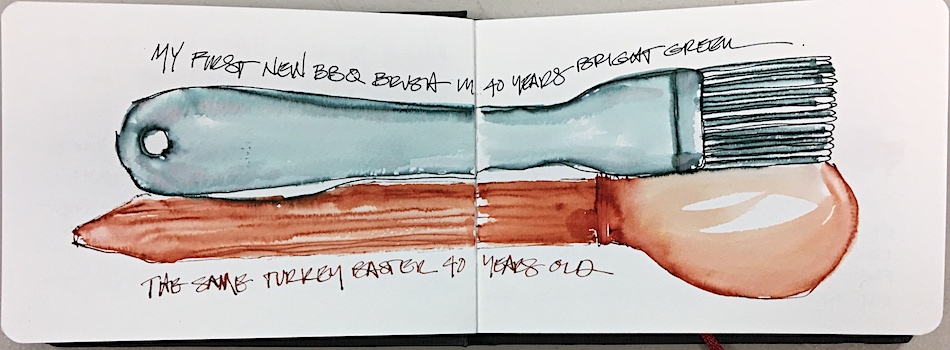 MY FIRST NEW BBQ BRUSH IN 40 YEARS BRIGHT GREEN.
THE SAME TURKEY BASTER 40 YEARS OLD